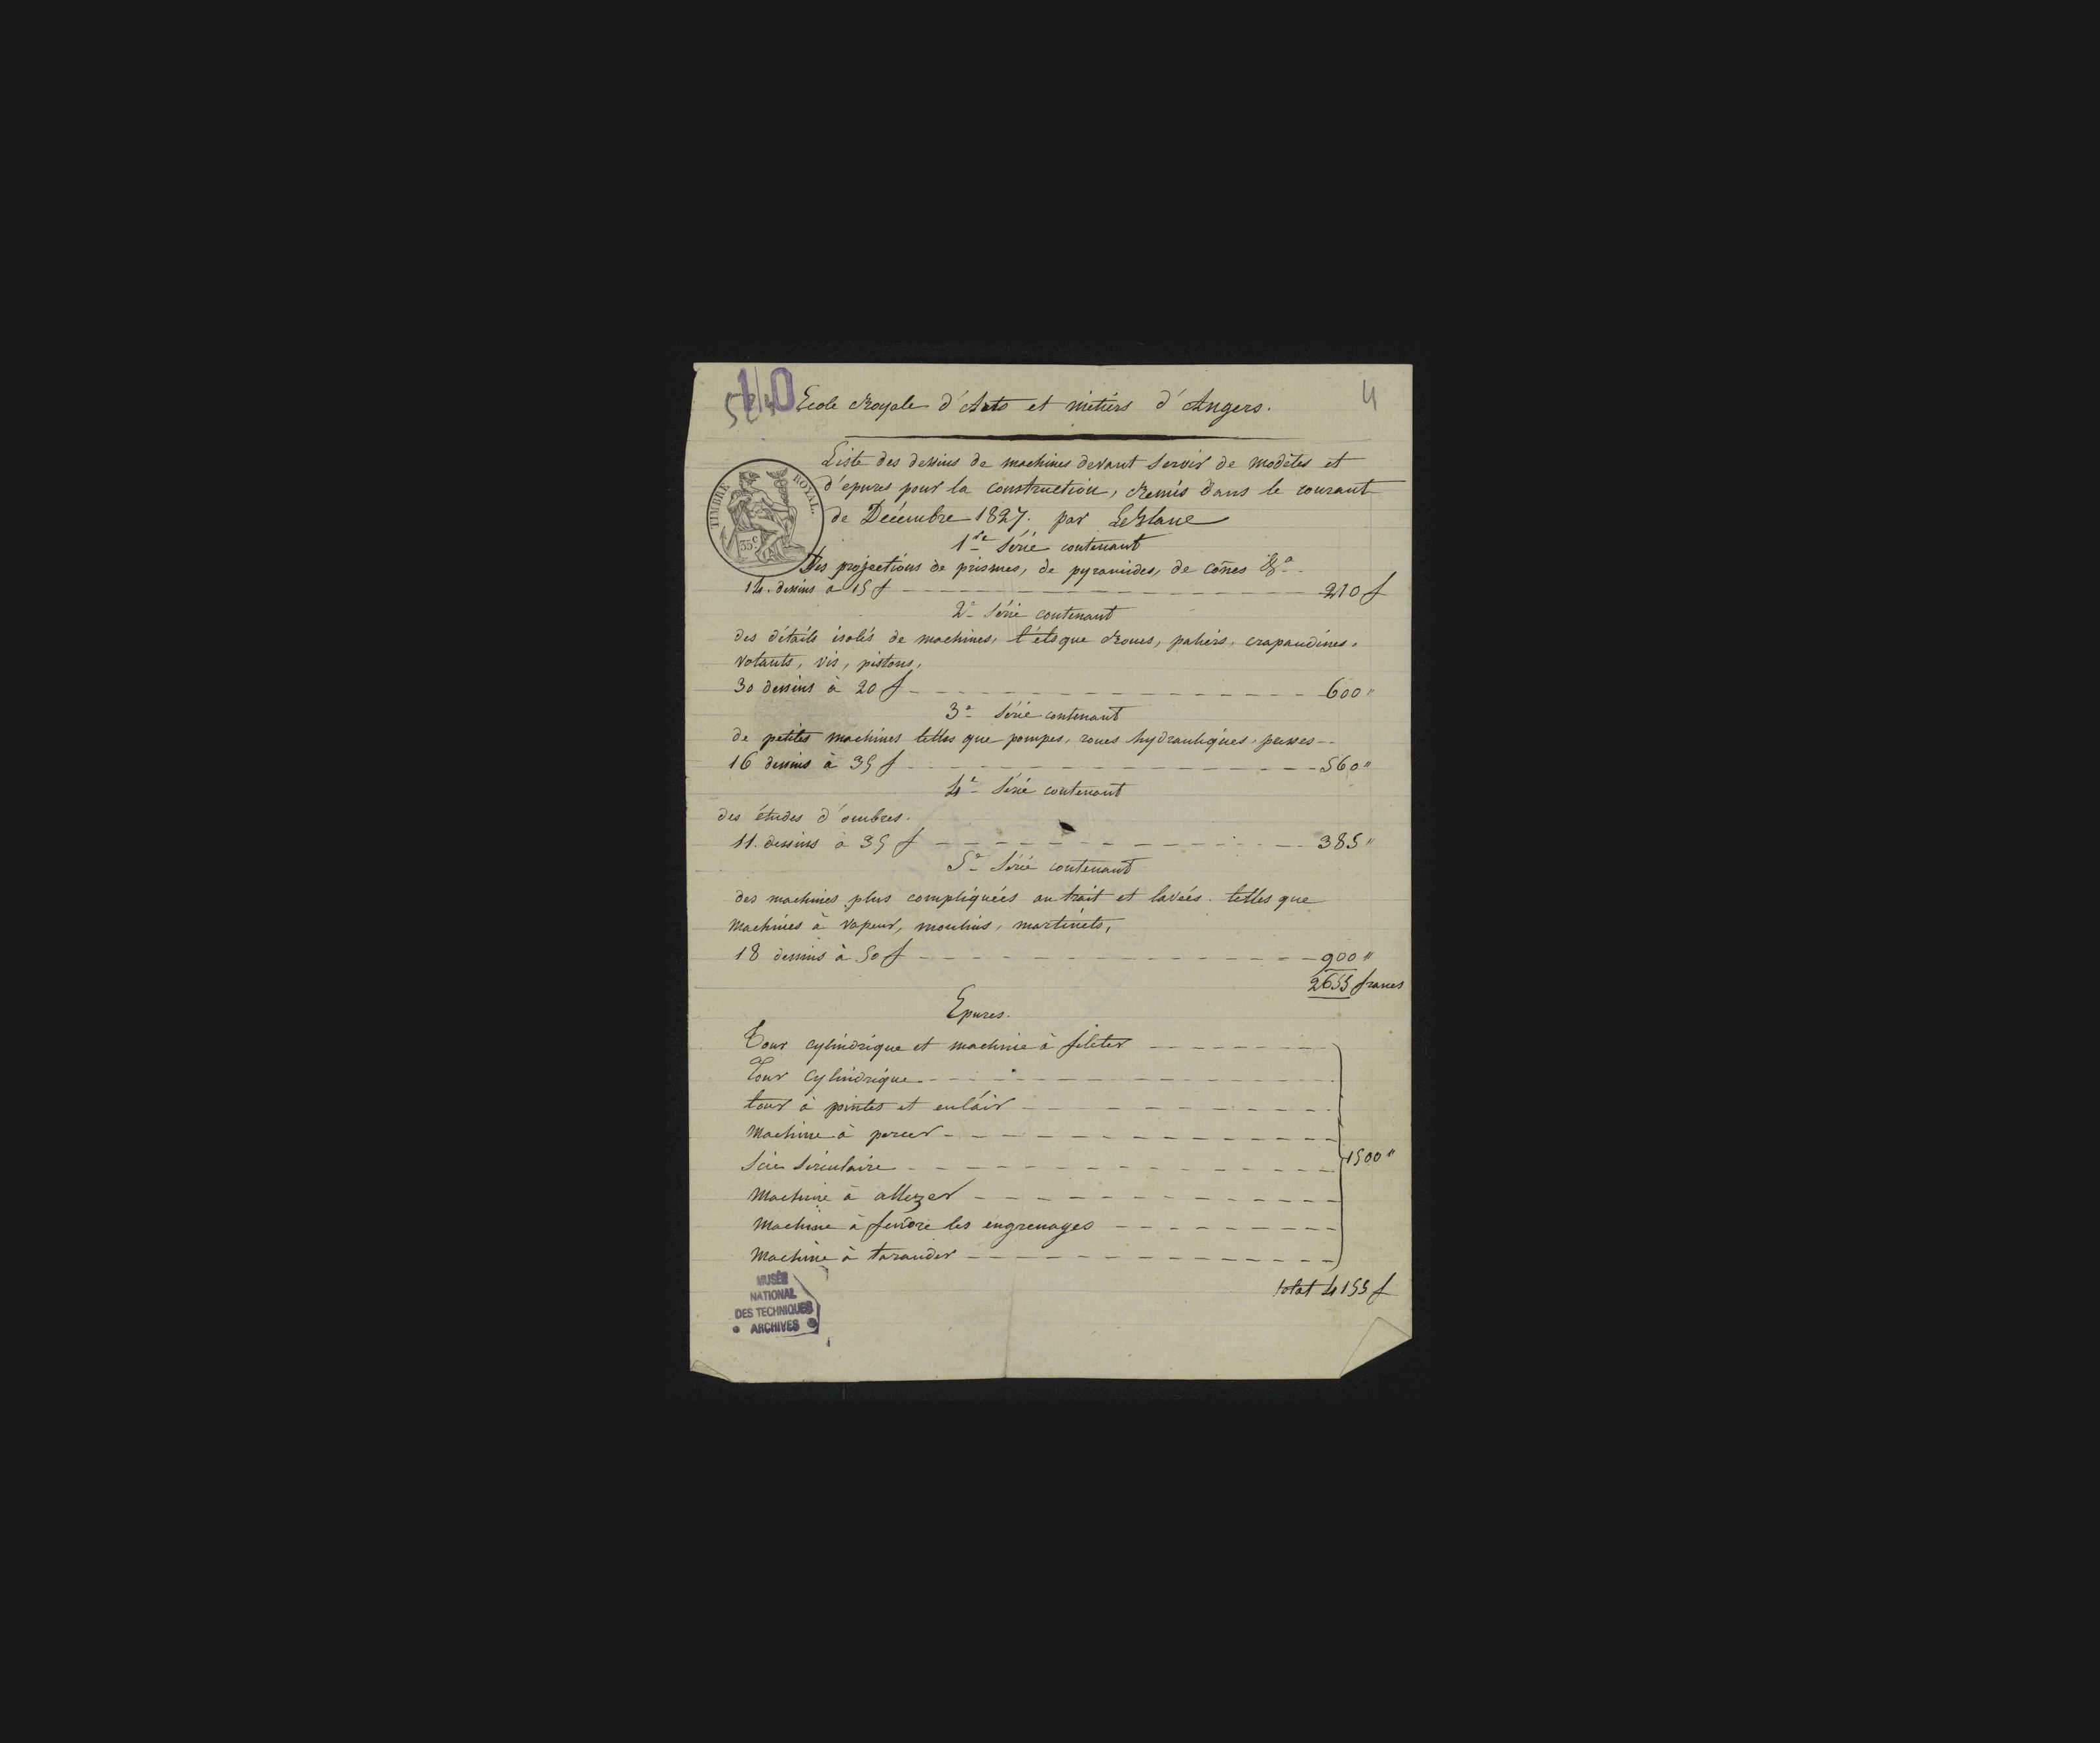 110
4
Ecole Royale d'Arts et métiers d'Angers.
Liste des dessins de machines devant servir de modèles et
d'epures pour la construction, Remis dans le courant
de Décembre 1827. par LeBlanc
TIMBRE ROYAL.
35c
1re Série contenant
Des projections de prismes, de pyramides, de cônes &a
14. dessins à 15 f 210 f
2e Série contenant
des détails isolés de machines, tels que Roues, paliers, crapaudines,
volants, vis, pistons,
30 dessins à 20 f 600 "
3e Série contenant
de petites machines telles que pompes, roues hydrauliques, presses
16 dessins à 35 f 560 "
4e Série contenant
des études d'ombres.
11. dessins à 35 f 385 "
5e Série contenant
des machines plus compliquées au trait et lavées. telles que
machines à vapeur, moulins, martinets,
18 dessins à 50 f 900 "
2655 francs
Epures.
Tour cylindrique et machine à fileter
Tour Cylindrique
tour à pointes et en l'air
Machine à percer
Scie Sirculaire 1500 "
Machine à allezer
Machine à fendre les engrenages
Machine à tarauder
total 4155 f
MUSÉE
NATIONAL
DES TECHNIQUES
ARCHIVES